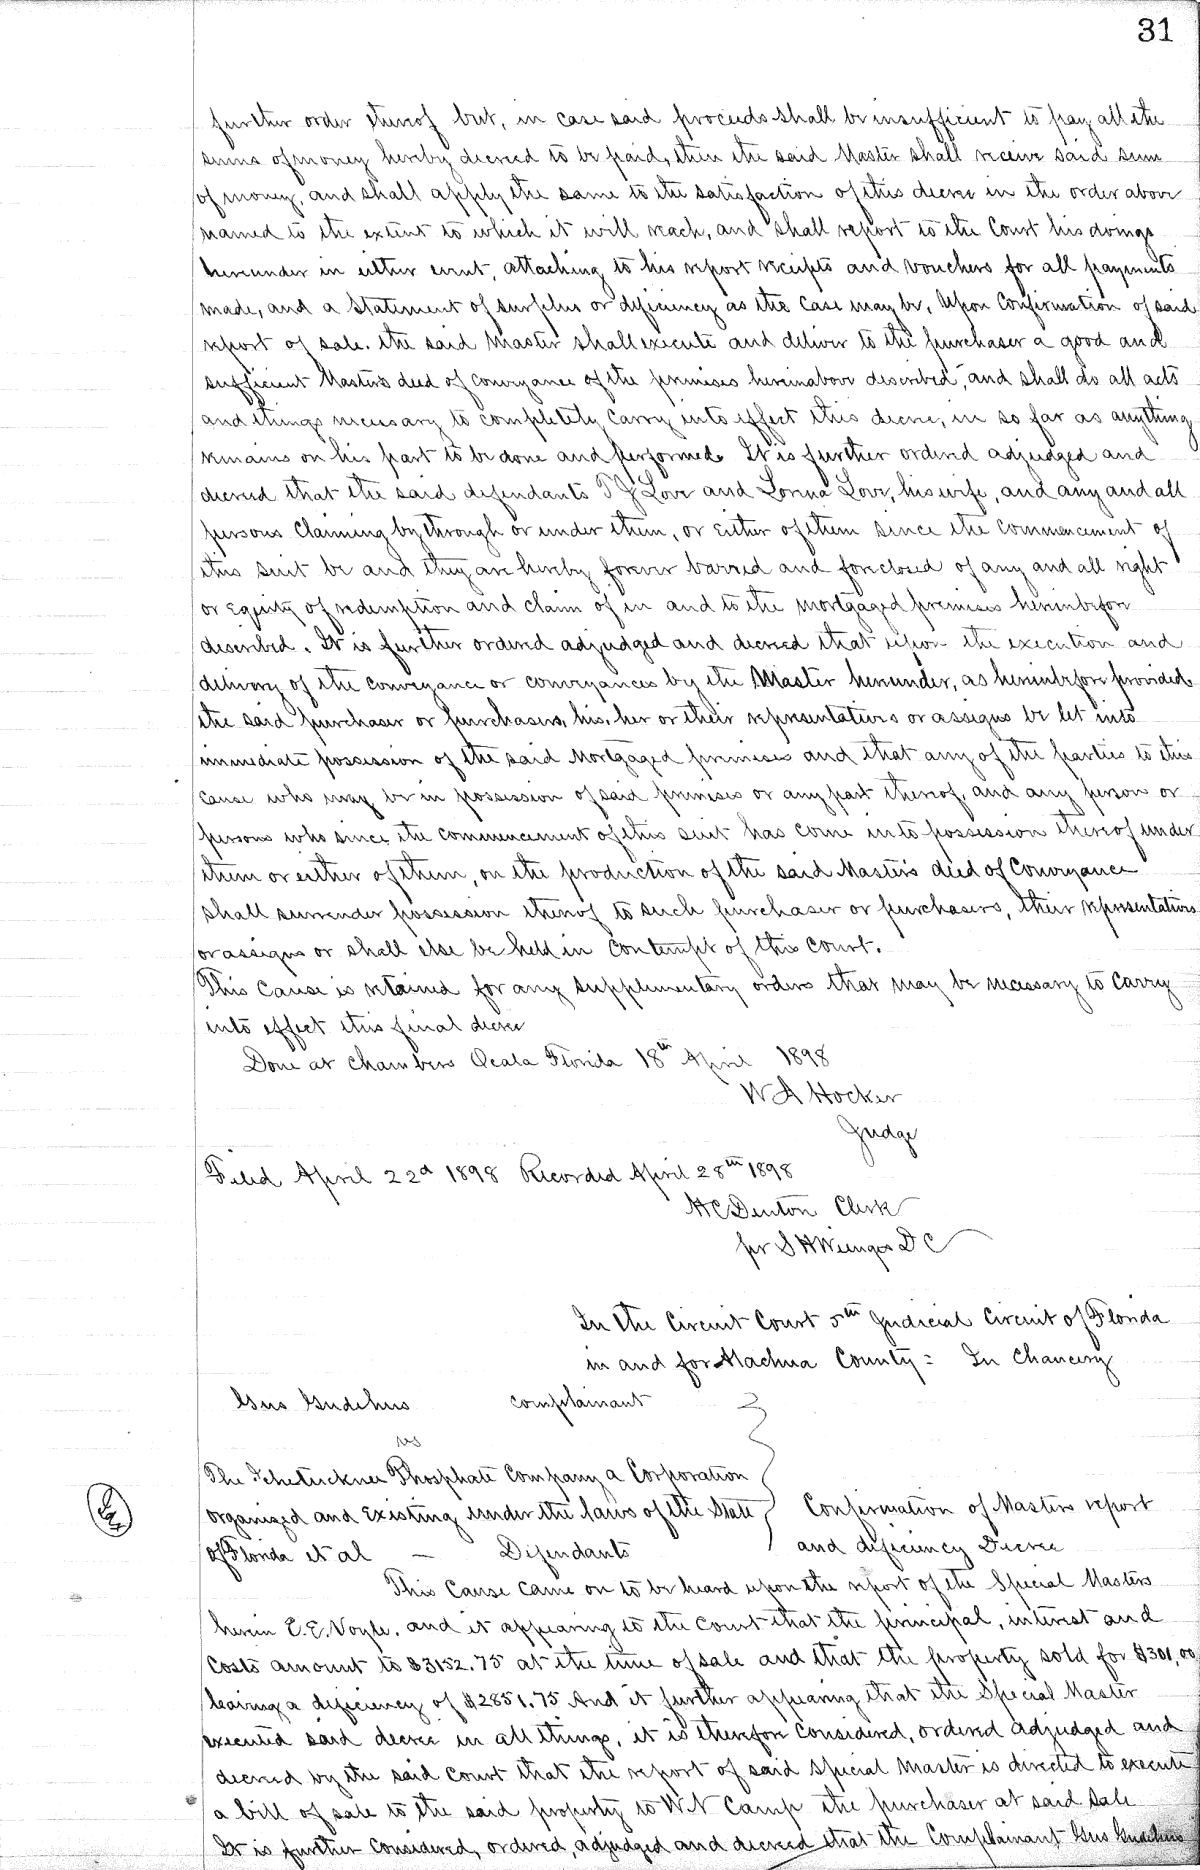 31
further order thereof but, in case said proceeds shall be insufficient to pay all the
sums of money hereby decreed to be paid, then the said Master shall receive said sum
of money, and shall apply the same to the satisfaction of this decree in the order above
named to the extent to which it will reach, and shall report to the Court his doings
hereunder in either event, attaching to his report receipts and vouchers for all payments
made, and a statement of surplus or deficiency as the case may be. Upon Confirmation of said
report of sale. the said Master shall execute and deliver to the purchaser a good and
sufficient Masters deed of conveyance of the premises hereinabove described, and shall do all acts
and things necessary to completely carry into effect this decree, in so far as anything
remains on his part to be done and performed. It is further ordered adjudged and
decreed that the said defendants T J Love and Lorena Love, his wife, and any and all
persons claiming by through or under them, or either of them since the commencement of
this suit be and they are hereby forever barred and foreclosed of any and all right
or Equity of redemption and claim of in and to the mortgaged premises hereinbefore
described. It is further ordered adjudged and decreed that upon the execution and
delivery of the conveyance or conveyances by the Master hereunder, as hereinbefore provided
the said purchaser or purchasers, his, her or their representatives or assigns be let into
immediate possession of the said Mortgaged premises and that any of the parties to this
cause who may be in possession of said premises or any part thereof, and any person or
persons who since the commencement of this suit has come into possession thereof under
them or either of them, on the production of the said Masters deed of Conveyance
shall surrender possession thereof to such purchaser or purchasers, their representatives
or assigns or shall else be held in contempt of this court.
This Cause is retained for any supplementary orders that may be necessary to carry
into effect this final decree
Done at chambers Ocala Florida 18th April 1898
W A Hocker
Judge
Filed April 22d 1898 Recorded April 28th 1898
H C Denton Clerk
per S H Wienges D C
In the Circuit Court 5th Judicial Circuit of Florida
in and for Alachua County: In Chancery
Gus Gudehus complainant
vs
The Ichetucknee Phosphate Company a Corporation
organized and Existing under the laws of the State Confirmation of Masters report
of Florida et al — Defendants and deficiency Decree
This Cause came on to be heard upon the report of the Special Masters
herein E.E. Voyle. and it appearing to the Court that the principal, interest and
Costs amount to $3152.75 at the time of sale and that the property sold for $301.00
leaving a deficiency of $2851.75 And it further appearing that the Special Master
executed said decree in all things, it is therefore considered, ordered adjudged and
decreed by the said court that the report of said Special Master is directed to execute
a bill of sale to the said property to W N Camp the purchaser at said sale
It is further considered, ordered, adjudged and decreed that the Complainant Gus Gudehus